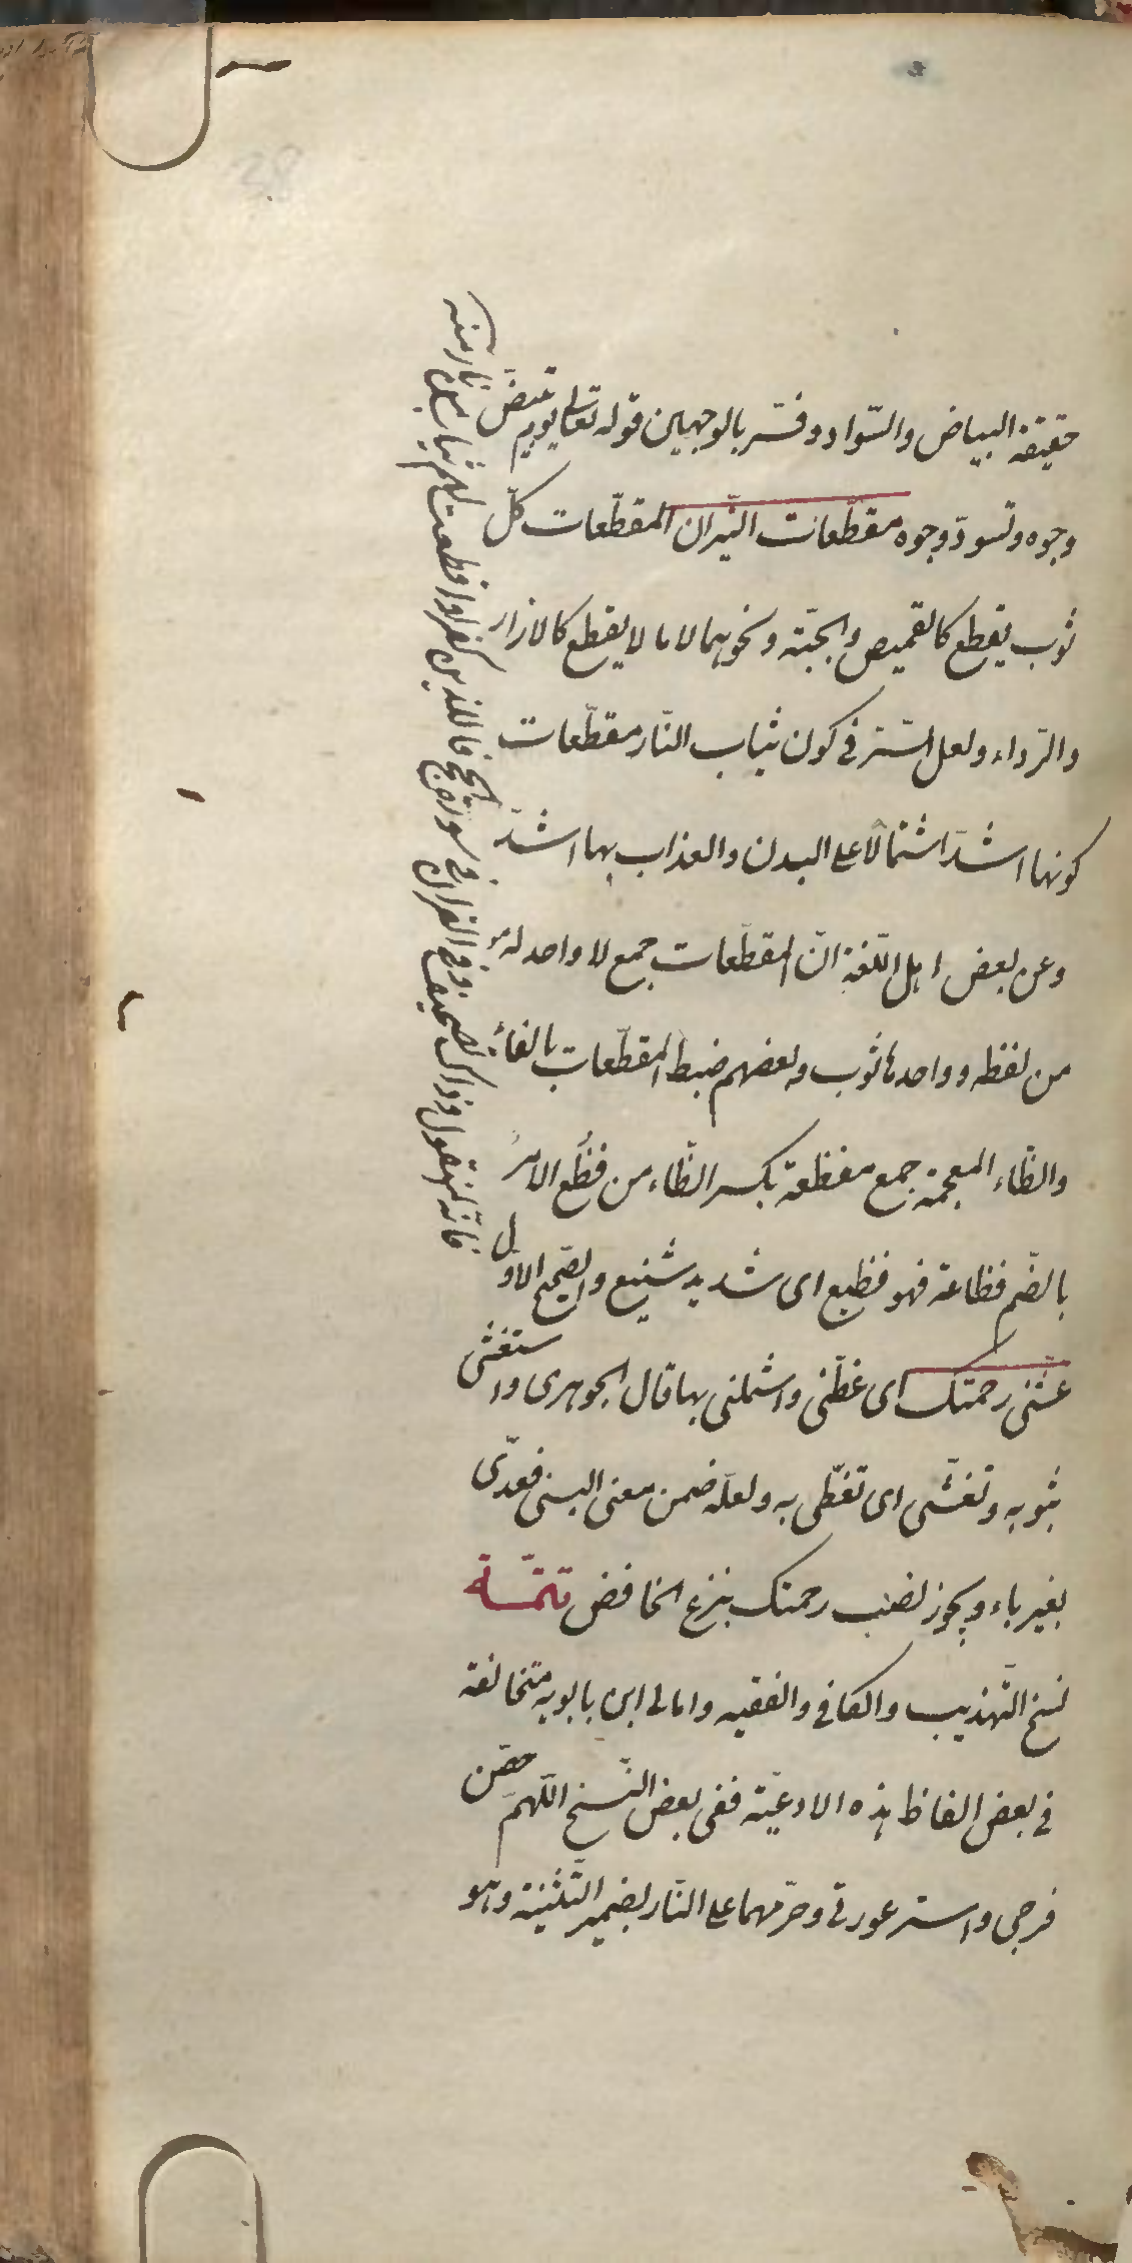 حقيقة البياض والسّواد وفسّر بالوجهين قوله تعالى يوم تبيضّ
وجوه وتسودّ وجوه مقطّعات النّيران المقطّعات كلّ
ثوب يقطع كالقميص والجبّة ونحوهما لا ما لا يقطع كالازار
والرّداء ولعل السّرّ في كون ثياب النّار مقطّعات
كونها اشدّ اشتمالا على البدن والعذاب بها اشدّ
وعن بعض اهل اللّغة انّ المقطّعات جمع لا واحد له
من لفظه وواحدها ثوب وبعضهم ضبط المقطّعات بالفاء
والظّاء المعجمة جمع مفظعة بكسر الظّاء من فظُع الامرُ
بالضّم فظاعة فهو فظيع اى شديد شنيع والصّحيح الاوّل
غشّنى رحمتك اى غطّنى واشملنى بها قال الجوهرى واستغشى
بثوبه وتغشّى اى تغطّى به ولعلّه ضمن معنى البسنى فعدّى
بغير باء ويجوز نصب رحمتك بنزع الخافض تتمّة
نسخ التّهذيب والكافي والفقيه وامالى ابن بابويه متخالفة
في بعض الفاظ هذه الادعيّة ففى بعض النّسخ اللّهمّ حصّن
فرجى واستر عورتى وحرّمهما على النّار بضمير التّثنية وهو
فى سورة الحج فالذين كفروا قطعت لهم ثياب من نار منه